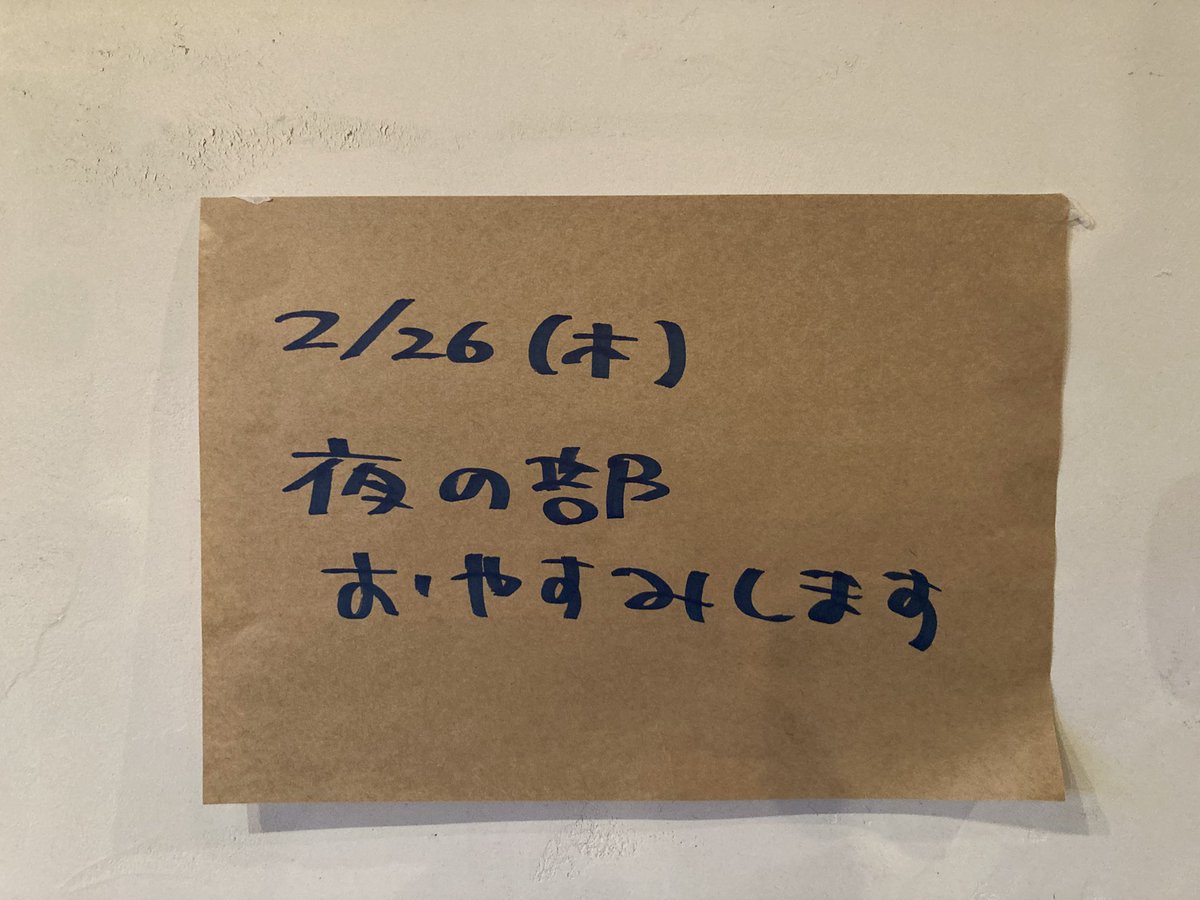 2/26(木)
夜の部
おやすみします